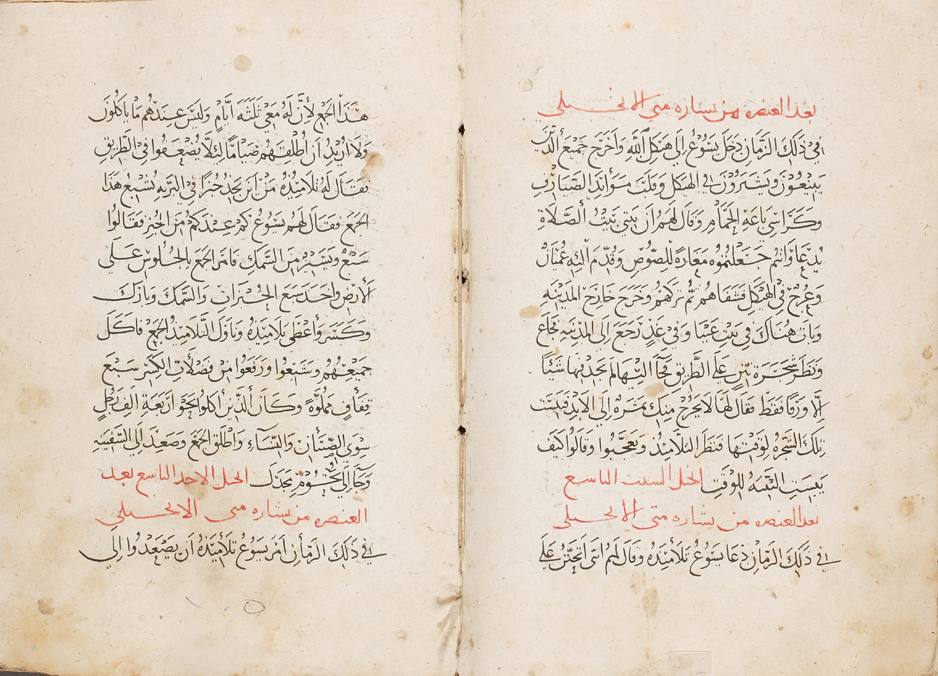 بعد العنصره من بشاره متى الانجيلي
في ذلك الزمان دخل يسوع الى هيكل الله واخرج جميع الذين
يبيعون ويشترون في الهيكل وقلب موائد الصيارف
وكراسي باعه الحمام وقال لهم ان بيتي بيت الصلاة
يدعا وانتم جعلتموه مغارة للصوص وقدم اليه عميان
وعرج في الهيكل فشفاهم ثم تركهم وخرج خارج المدينه
وبات هناك في بيت عنيا وفي غد رجع الى المدينه فجاع
ونظر شجرة تين على الطريق فجا اليها لم يجد فيها شيئا
الا ورقا فقط فقال لها لا يخرج منك ثمره الى الابد فيبست
تلك الشجره لوقتها فنظر التلاميذ وتعجبوا وقالوا كيف
يبست التينه للوقت انجيل السبت التاسع
بعد العنصره من بشاره متى الانجيلي
في ذلك الزمان دعا يسوع تلاميذه وقال لهم انني اتحنن على
هذا الجمع لان له معي ثلثه ايام وليس عندهم ما ياكلون
ولا اريد ان اطلقهم صياما ليلا يضعفوا في الطريق
فقال له تلاميذه من اين نجد خبزا في البريه نشبع هذا
الجمع فقال لهم يسوع كم عندكم من الخبز فقالوا
سبع ويسير من السمك فامر الجمع بالجلوس على
الارض واخذ سبع الخبزات والسمك وبارك
وكسر واعطى تلاميذه وناول التلاميذ الجمع فاكل
جميعهم وشبعوا ورفعوا من فضلات الكسر سبع
قفاف مملوة وكان الذين اكلوا نحو اربعة الف رجل
سوى الصبيان والنساء واطلق الجمع وصعد الى السفينه
وجا الى تخوم مجدل انجيل الاحد التاسع بعد
العنصره من بشاره متى الانجيلي
في ذلك الزمان امر يسوع تلاميذه ان يصعدوا الى